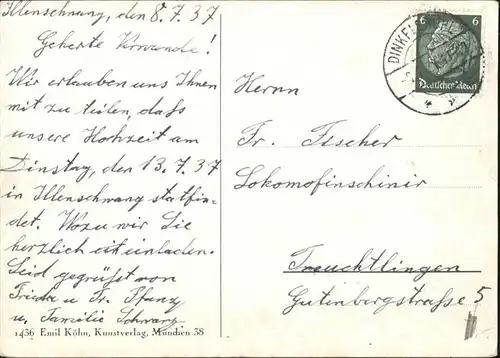 Illenschwang, den 8.7.37
Geherte Verwande!
Wir erlauben uns Ihnen
mit zu teilen, daß
unsere Hochzeit am
Dinstag, den 13.7.37
in Illenschwang statfin-
det. Wozu wir Sie
herzlich einladen.
Seid gegrüßt von
Frieda u Fr. Pfanz
u, Familie Schwarz
1456 Emil Köhn, Kunstverlag, München 38
DINKEL
6 6
Deutsches Reich
Herrn
Fr. Fischer
Treuchtlingen
Gutenbergstraße 5